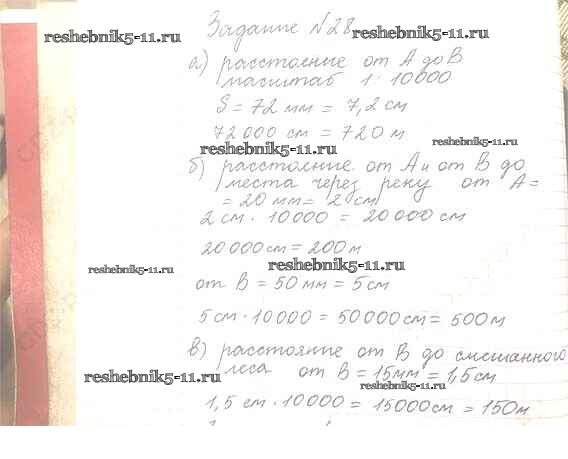 Задание №28
reshebnik5-11.ru
reshebnik5-11.ru
а) расстояние от А до В
масштаб 1:10000
S = 72 мм = 7,2 см
72000 см = 720 м
reshebnik5-11.ru
reshebnik5-11.ru
б) расстояние от А и от В до
места через реку от А =
= 20 мм = 2 см
2 см · 10000 = 20000 см
20000 см = 200 м
reshebnik5-11.ru
reshebnik5-11.ru
от В = 50 мм = 5 см
5 см · 10000 = 50000 см = 500 м
в) расстояние от В до смешанного
леса от В = 15 мм = 1,5 см
reshebnik5-11.ru
reshebnik5-11.ru
1,5 см · 10000 = 15000 см = 150 м